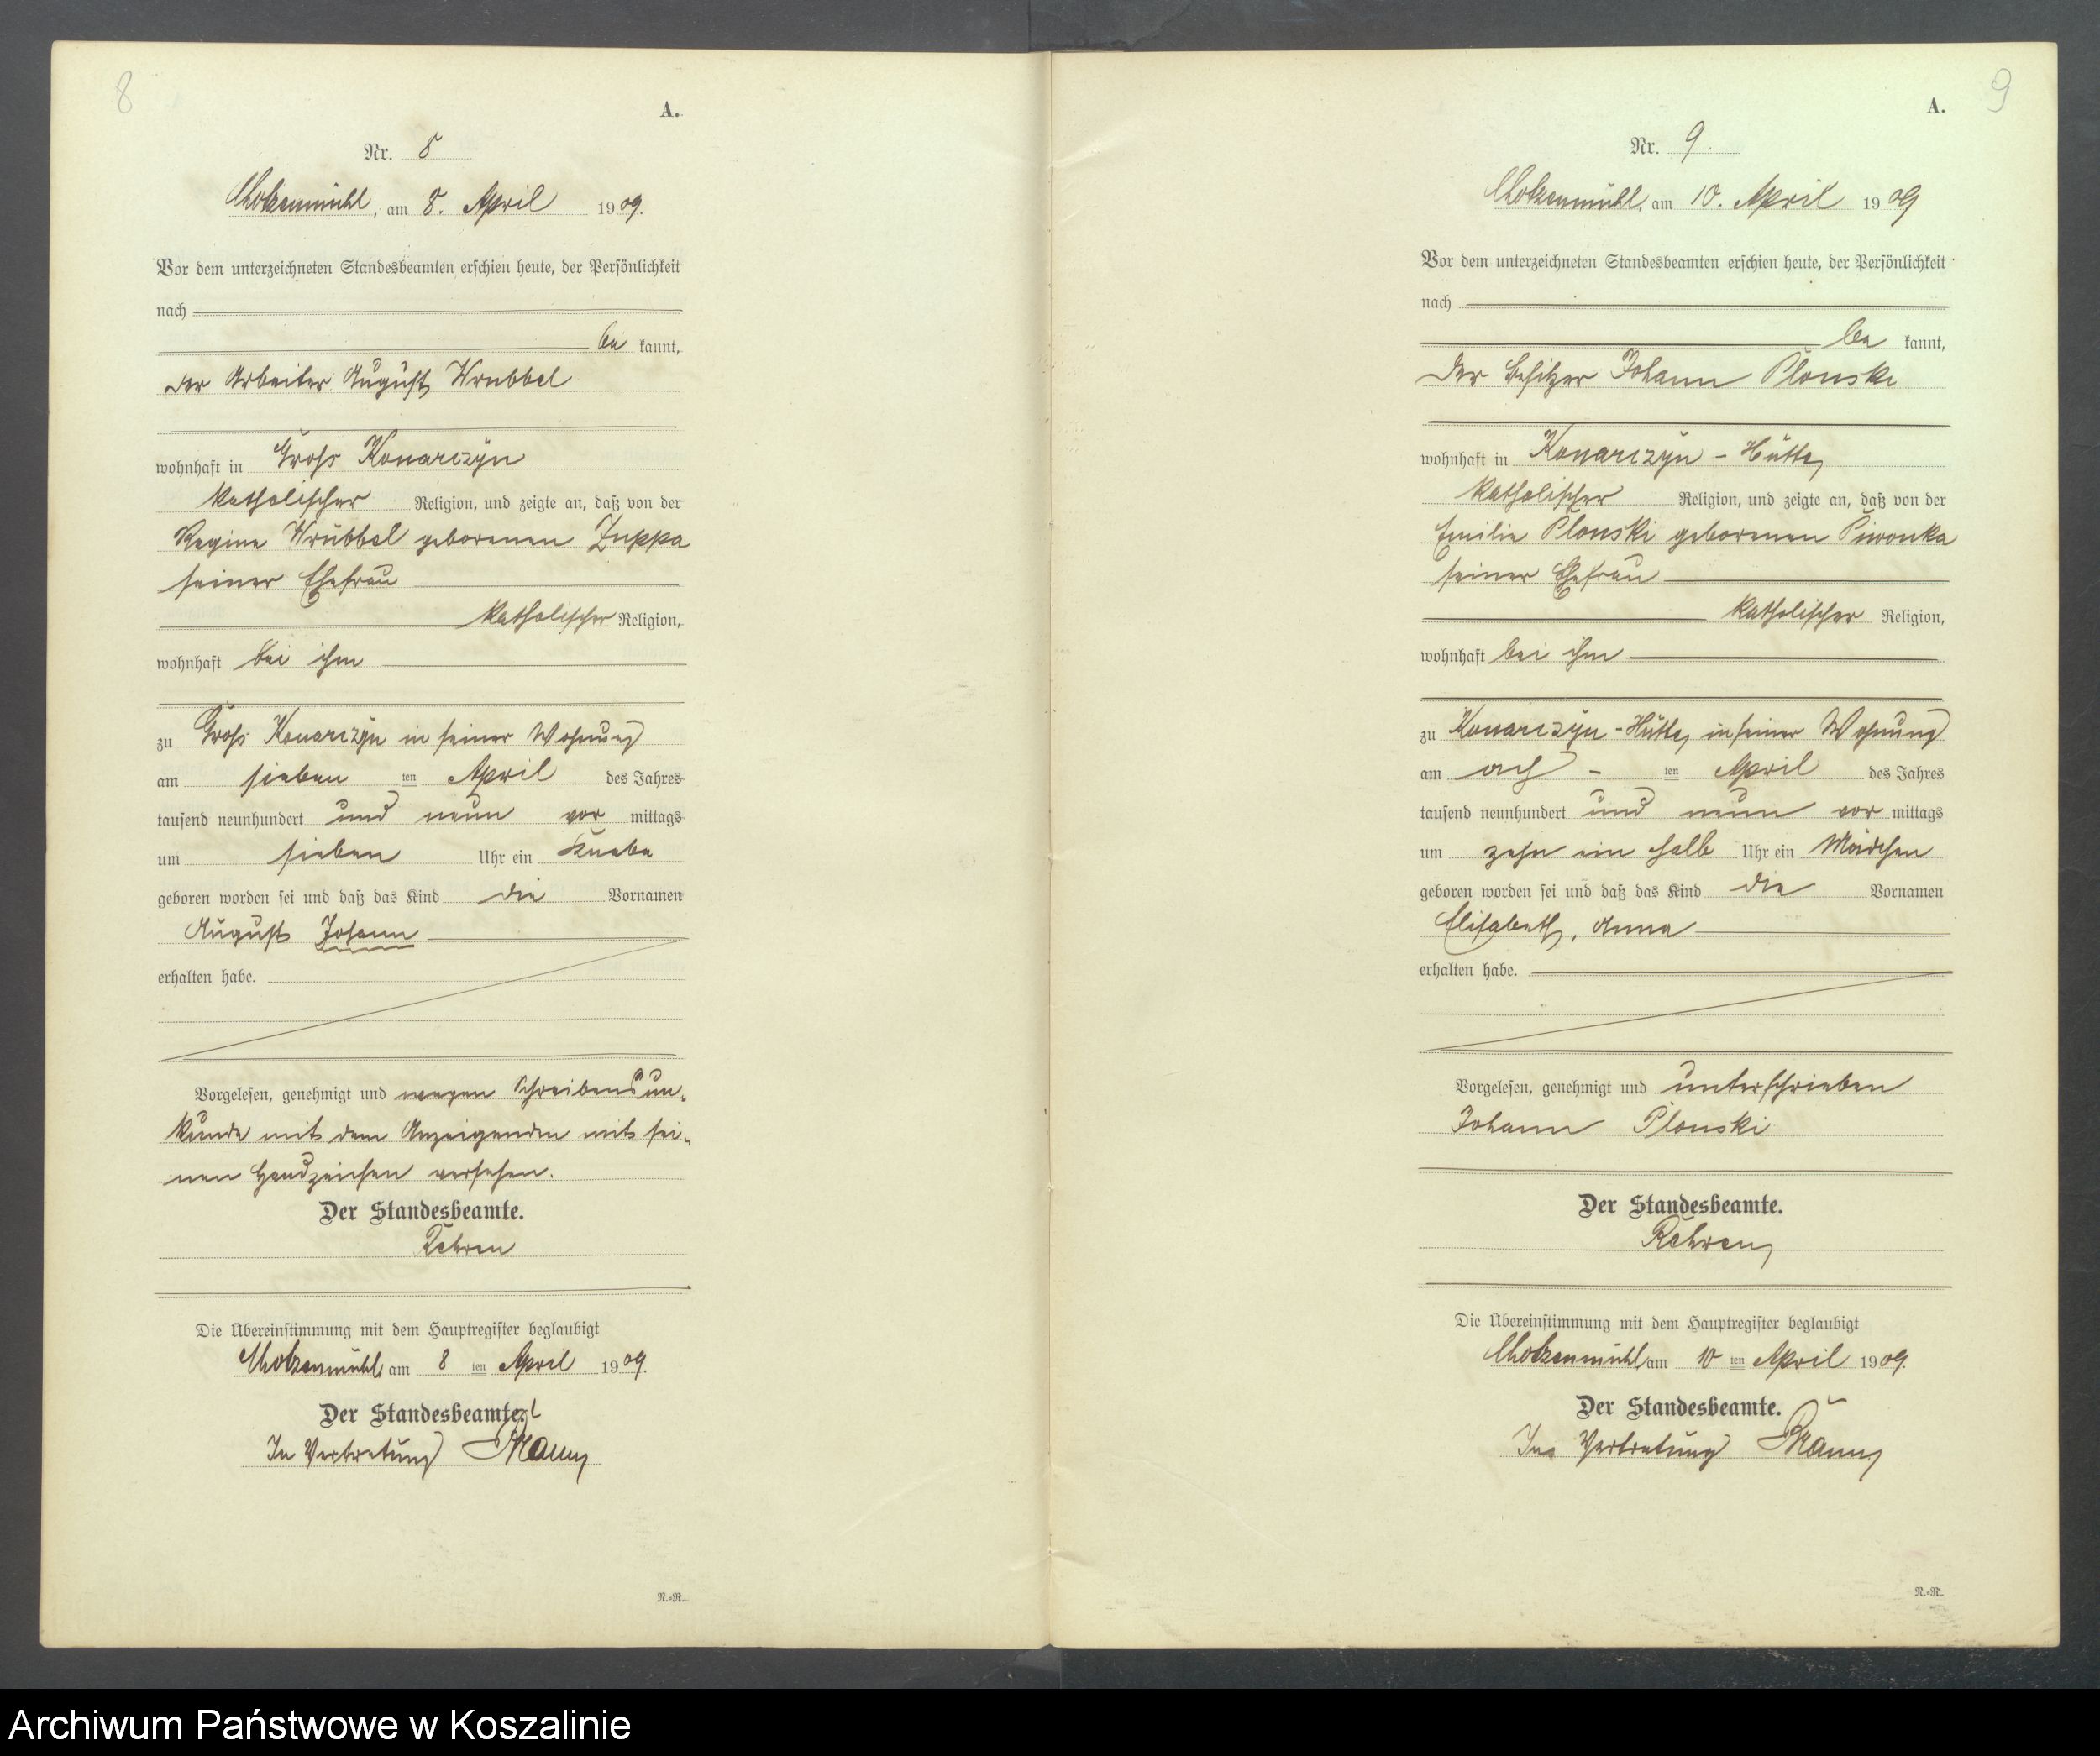 8
A.
Nr. 8
Chotzenmühl, am 8. April 1909.
Vor dem unterzeichneten Standesbeamten erschien heute, der Persönlichkeit
nach
be kannt,
der Arbeiter August Wrubbel
wohnhaft in Gross Konarczyn
katholischer Religion, und zeigte an, daß von der
Regina Wrubbel geborenen Zuppa
seiner Ehefrau
katholischer Religion,
wohnhaft bei ihm
zu Gross Konarczyn in seiner Wohnung
am sieben ten April des Jahres
tausend neunhundert und neun vor mittags
um sieben Uhr ein Knabe
geboren worden sei und daß das Kind die Vornamen
August Johann
erhalten habe.
Vorgelesen, genehmigt und wegen Schreibens un-
kunde mit dem Anzeigenden mit sei-
nen Handzeichen versehen.
Der Standesbeamte.
Rehren
Die Übereinstimmung mit dem Hauptregister beglaubigt
Chotzenmühl am 8 ten April 1909.
Der Standesbeamte.
In Vertretung
N.=R.
9
A.
Nr. 9.
Chotzenmühl, am 10. April 1909
Vor dem unterzeichneten Standesbeamten erschien heute, der Persönlichkeit
nach
be kannt,
der Besitzer Johann Plonski
wohnhaft in Konarczyn-Hütte
katholischer Religion, und zeigte an, daß von der
Emilie Plonski geborenen Piwonka
seiner Ehefrau
katholischer Religion,
wohnhaft bei ihm
zu Konarczyn-Hütte, in seiner Wohnung
am ach - ten April des Jahres
tausend neunhundert und neun vor mittags
um zehn ein halb Uhr ein Mädchen
geboren worden sei und daß das Kind die Vornamen
Elisabeth, Anna
erhalten habe.
Vorgelesen, genehmigt und unterschrieben
Johann Plonski
Der Standesbeamte.
Rehren
Die Übereinstimmung mit dem Hauptregister beglaubigt
Chotzenmühl am 10 ten April 1909.
Der Standesbeamte.
In Vertretung
N.=R.
Archiwum Państwowe w Koszalinie